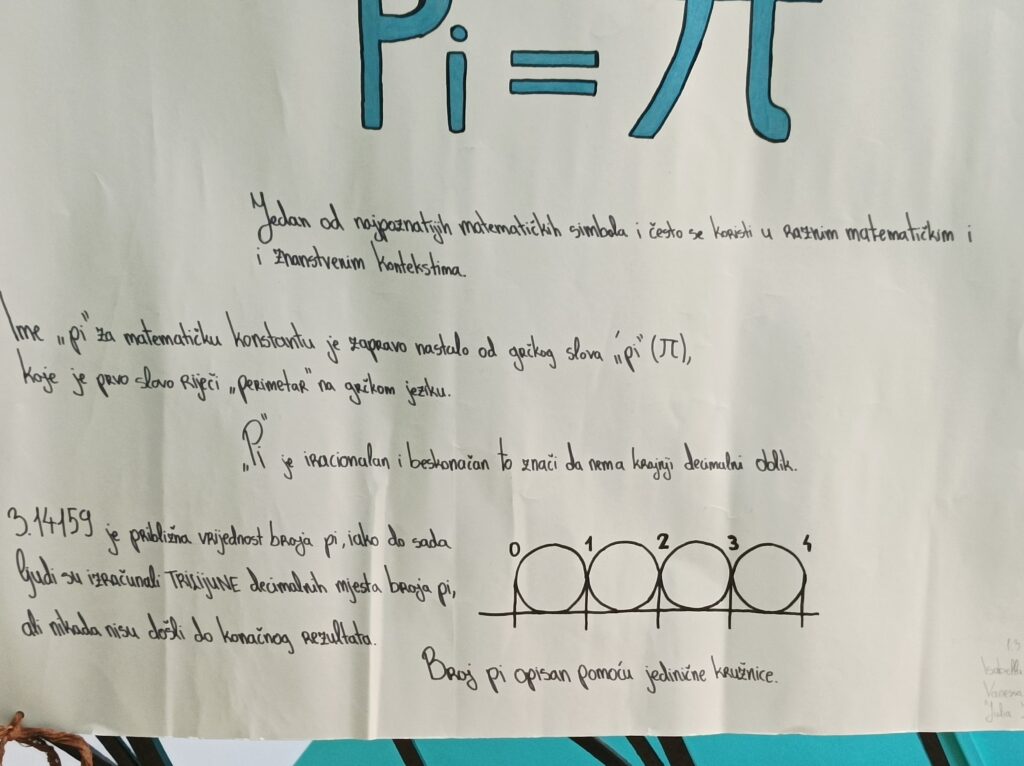 Pi = π
Jedan od najpoznatijih matematičkih simbola i često se koristi u raznim matematičkim i
i znanstvenim kontekstima.
Ime „pi" za matematičku konstantu je zapravo nastalo od grčkog slova "pi" (π),
koje je prvo slovo riječi „perimetar" na grčkom jeziku.
„Pi" je iracionalan i beskonačan to znači da nema krajnji decimalni oblik.
3.14159 je približna vrijednost broja pi, iako do sada
ljudi su izračunali TRILIJUNE decimalnih mjesta broja pi,
ali nikada nisu došli do konačnog rezultata.
0 1 2 3 4
Broj pi opisan pomoću jedinične kružnice.
Julia